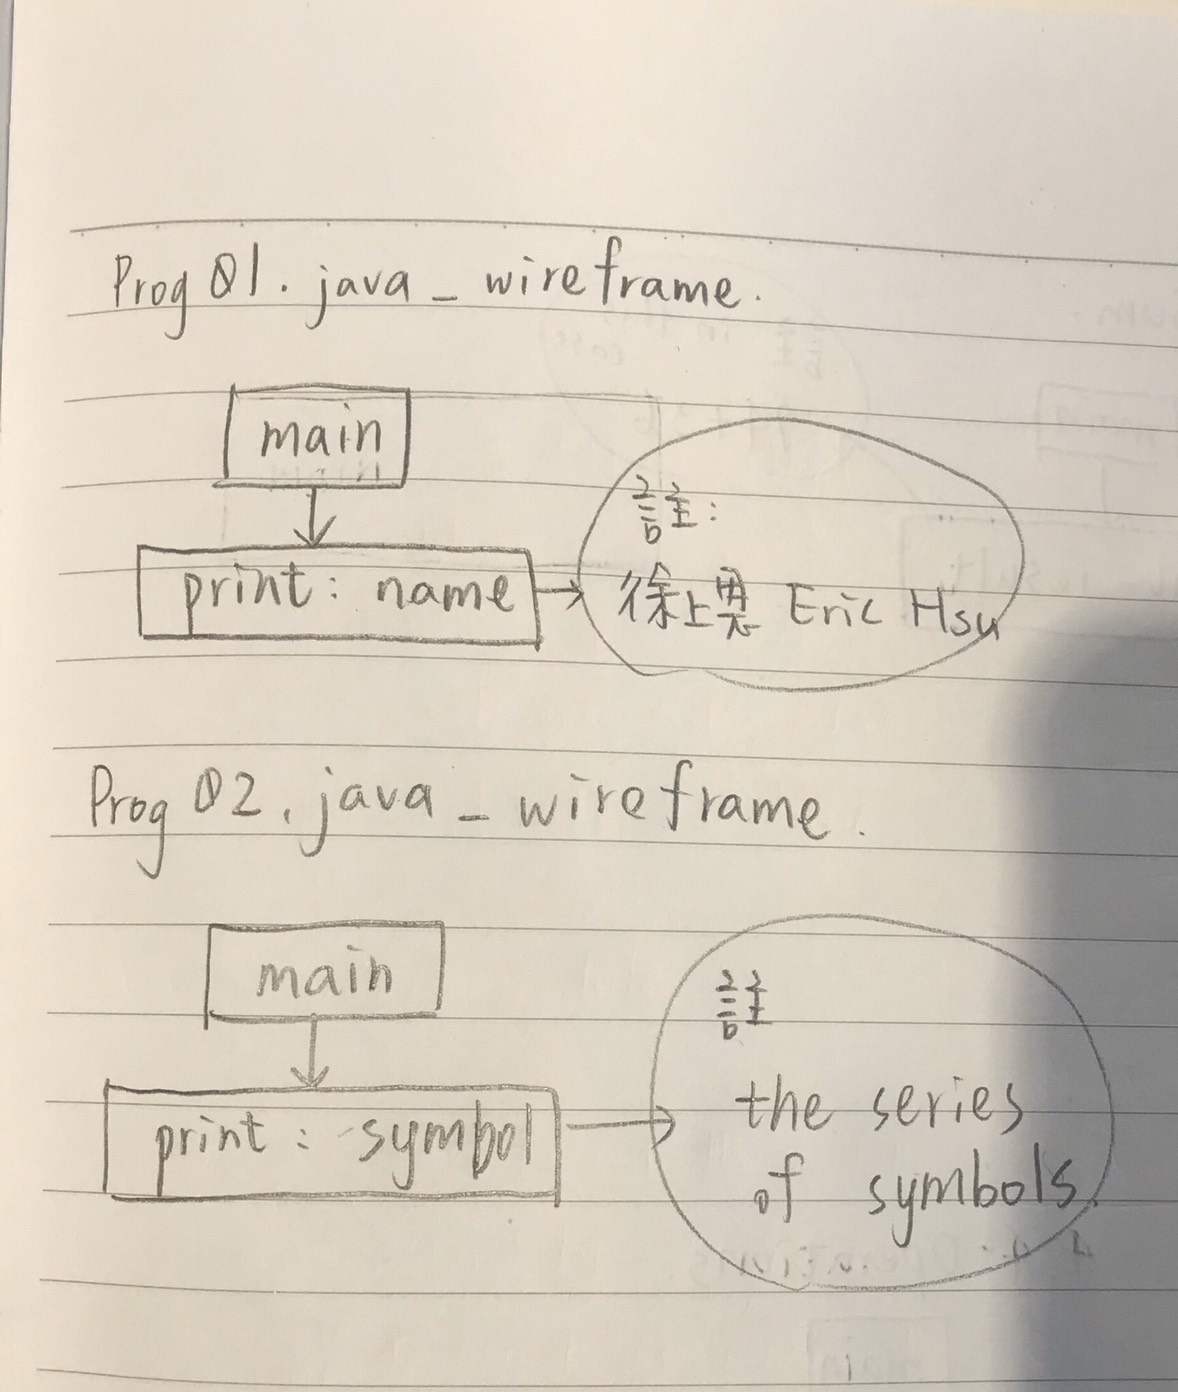 Prog01.java_wireframe.
main
print: name
註:
徐上恩 Eric Hsu
Prog02.java_wireframe.
main
print: symbol
註
the series
of symbols.